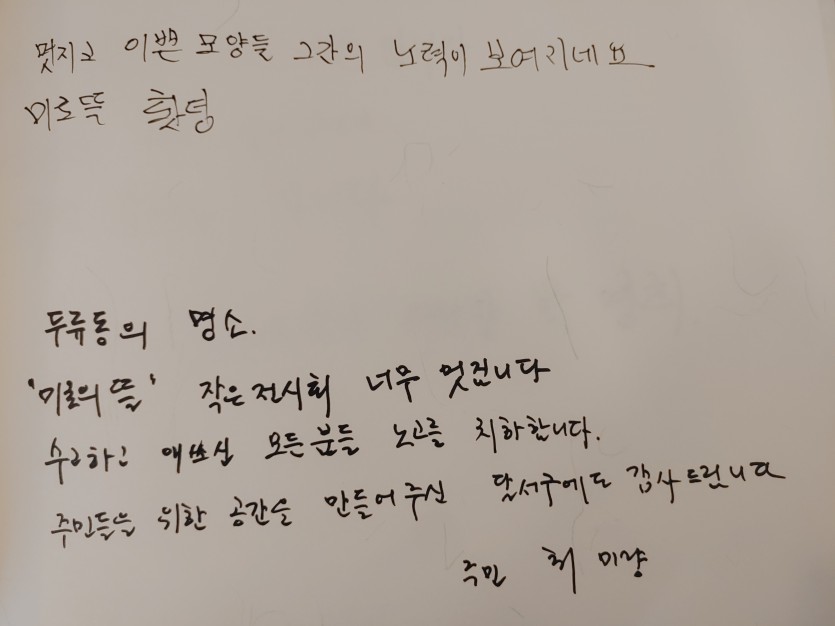 멋지고 이쁜 모양들 그간의 노력이 보여지네요
미로뜩 홧텅
두류동의 명소.
'미로의 뜰' 작은전시회 너무 멋집니다
수고하고 애쓰신 모든분들 노고를 치하합니다.
주민들을 위한 공간을 만들어주신 달서구에도 감사드립니다
주민 최미량